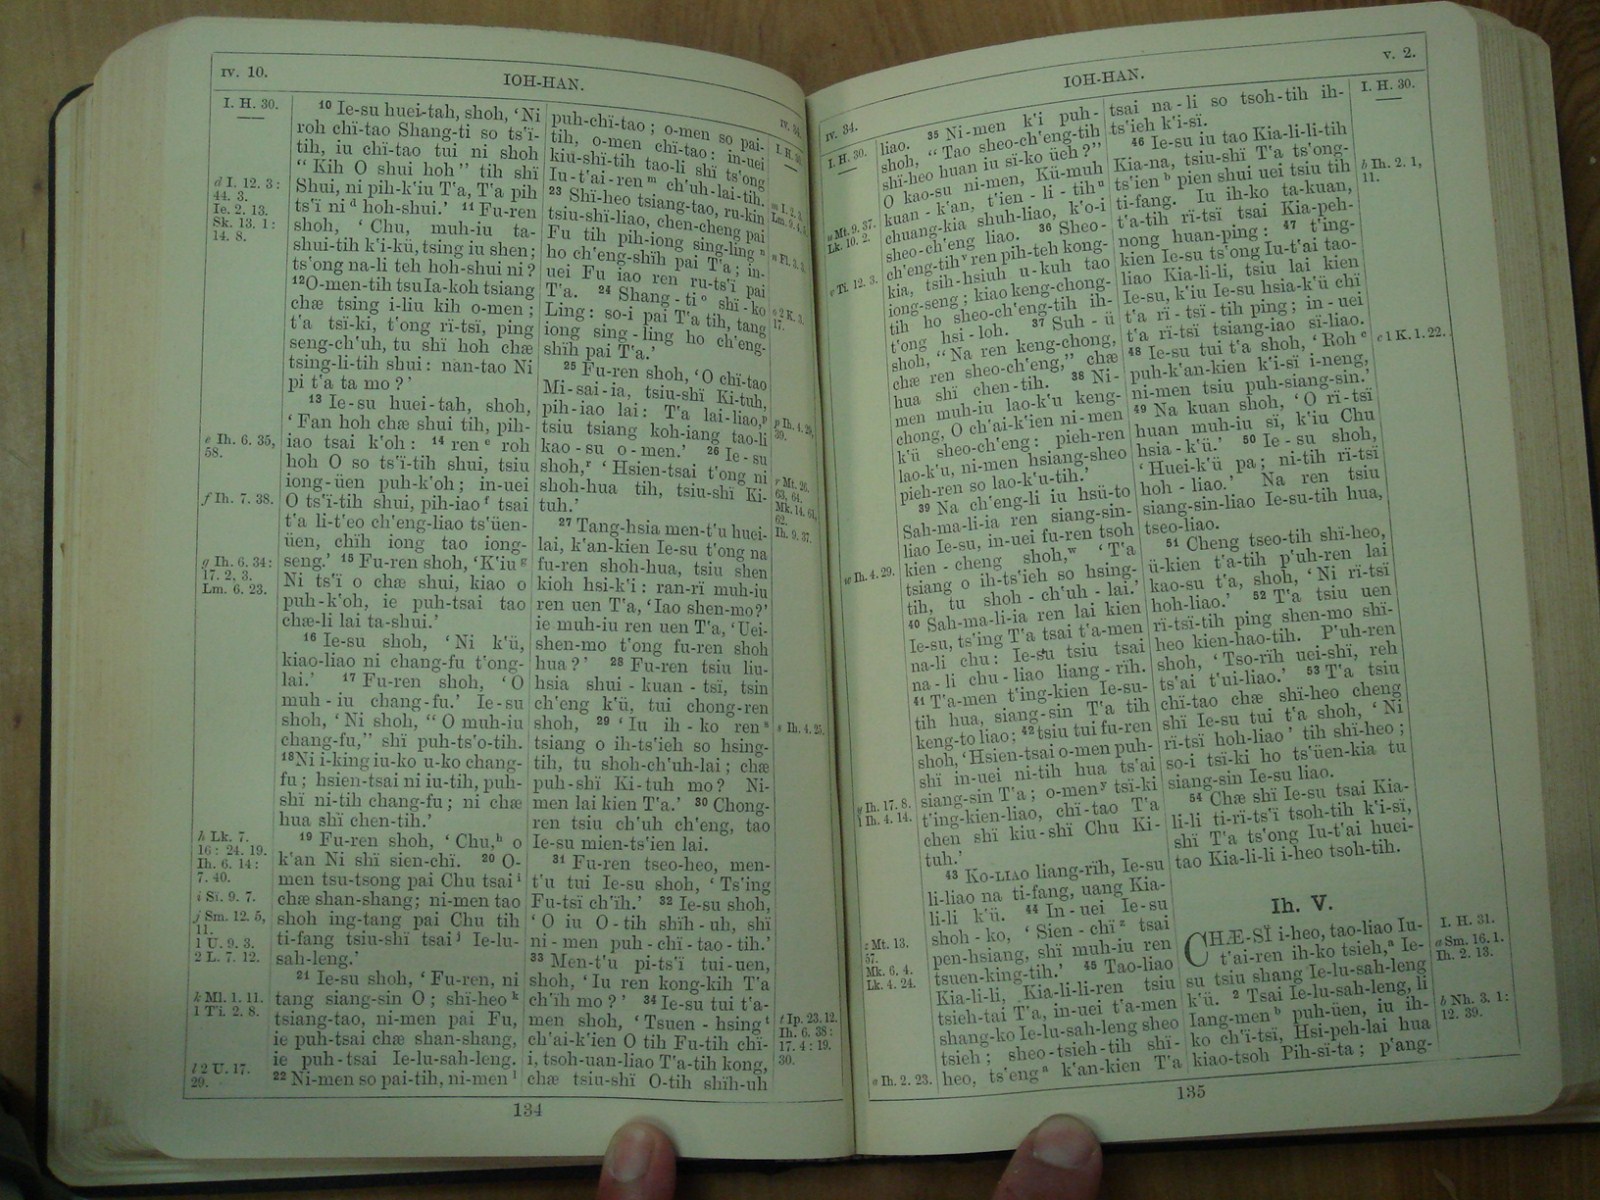 IV. 10.
IOH-HAN.
I. H. 30.
d I. 12. 3:
44. 3.
Ie. 2. 13.
Sk. 13. 1:
14. 8.
e Ih. 6. 35,
58.
f Ih. 7. 38.
g Ih. 6. 34:
17. 2, 3.
Lm. 6. 23.
h Lk. 7.
16: 24. 19.
Ih. 6. 14:
7. 40.
i Si. 9. 7.
j Sm. 12. 5,
11.
1 U. 9. 3.
2 L. 7. 12.
k Ml. 1. 11.
1 Ti. 2. 8.
l 2 U. 17.
29.
10 Ie-su huei-tah, shoh, ‘Ni
roh chï-tao Shang-ti so ts'ï-
tih, iu chï-tao tui ni shoh
“Kih O shui hoh” tih shï
Shui, ni pih-k'iu T'a, T'a pih
ts'ï ni d hoh-shui.’ 11 Fu-ren
shoh, ‘Chu, muh-iu ta-
shui-tih k'i-kü, tsing iu shen;
ts'ong na-li teh hoh-shui ni?
12 O-men-tih tsu Ia-koh tsiang
chæ tsing i-liu kih o-men;
t'a tsï-ki, t'ong rï-tsï, ping
seng-ch'uh, tu shï hoh chæ
tsing-li-tih shui: nan-tao Ni
pi t'a ta mo?’
13 Ie-su huei-tah, shoh,
‘Fan hoh chæ shui tih, pih-
iao tsai k'oh: 14 ren e roh
hoh O so ts'ï-tih shui, tsiu
iong-üen puh-k'oh; in-uei
O ts'ï-tih shui, pih-iao f tsai
t'a li-t'eo ch'eng-liao ts'üen-
üen, chïh iong tao iong-
seng.’ 15 Fu-ren shoh, ‘K'iu g
Ni ts'ï o chæ shui, kiao o
puh-k'oh, ie puh-tsai tao
chæ-li lai ta-shui.’
16 Ie-su shoh, ‘Ni k'ü,
kiao-liao ni chang-fu t'ong-
lai.’ 17 Fu-ren shoh, ‘O
muh-iu chang-fu.’ Ie-su
shoh, ‘Ni shoh, “O muh-iu
chang-fu,” shï puh-ts'o-tih.
18 Ni i-king iu-ko u-ko chang-
fu; hsien-tsai ni iu-tih, puh-
shï ni-tih chang-fu; ni chæ
hua shï chen-tih.’
19 Fu-ren shoh, ‘Chu, h o
k'an Ni shï sien-chï. 20 O-
men tsu-tsong pai Chu tsai i
chæ shan-shang; ni-men tao
shoh ing-tang pai Chu tih
ti-fang tsiu-shï tsai j Ie-lu-
sah-leng.’
21 Ie-su shoh, ‘Fu-ren, ni
tang siang-sin O; shï-heo k
tsiang-tao, ni-men pai Fu,
ie puh-tsai chæ shan-shang,
ie puh-tsai Ie-lu-sah-leng.
22 Ni-men so pai-tih, ni-men l
puh-chï-tao; o-men so pai-
tih, o-men chï-tao: in-uei
kiu-shï-tih tao-li shï ts'ong
Iu-t'ai-ren m ch'uh-lai-tih.
23 Shï-heo tsiang-tao, ru-kin
tsiu-shï-liao, chen-cheng pai
Fu tih pih-iong sing-ling n
ho ch'eng-shïh pai T'a; in-
uei Fu iao ren ru-ts'ï pai
T'a. 24 Shang-ti o shï-ko
Ling: so-i pai T'a tih, tang
iong sing-ling ho ch'eng-
shïh pai T'a.’
25 Fu-ren shoh, ‘O chï-tao
Mi-sai-ia, tsiu-shï Ki-tuh,
pih-iao lai: T'a lai-liao, p
tsiu tsiang koh-iang tao-li
kao-su o-men.’ 26 Ie-su
shoh, r ‘Hsien-tsai t'ong ni
shoh-hua tih, tsiu-shï Ki-
tuh.’
27 Tang-hsia men-t'u huei-
lai, k'an-kien Ie-su t'ong na
fu-ren shoh-hua, tsiu shen
kioh hsi-k'i: ran-rï muh-iu
ren uen T'a, ‘Iao shen-mo?’
ie muh-iu ren uen T'a, ‘Uei-
shen-mo t'ong fu-ren shoh
hua?’ 28 Fu-ren tsiu liu-
hsia shui-kuan-tsï, tsin
ch'eng k'ü, tui chong-ren
shoh, 29 ‘Iu ih-ko ren s
tsiang o ih-ts'ieh so hsing-
tih, tu shoh-ch'uh-lai; chæ
puh-shï Ki-tuh mo? Ni-
men lai kien T'a.’ 30 Chong-
ren tsiu ch'uh ch'eng, tao
Ie-su mien-ts'ien lai.
31 Fu-ren tseo-heo, men-
t'u tui Ie-su shoh, ‘Ts'ing
Fu-tsï ch'ïh.’ 32 Ie-su shoh,
‘O iu O-tih shïh-uh, shï
ni-men puh-chï-tao-tih.’
33 Men-t'u pi-ts'ï tui-uen,
shoh, ‘Iu ren kong-kih T'a
ch'ïh mo?’ 34 Ie-su tui t'a-
men shoh, ‘Tsuen-hsing t
ch'ai-k'ien O tih Fu-tih chï-
i, tsoh-uan-liao T'a-tih kong,
chæ tsiu-shï O-tih shïh-uh
I. H. 30
m I. 2. 3.
n Fl. 3. 3.
o 2 K. 3.
17.
p Ih. 4. 29,
39.
r Mt. 26.
63, 64.
Mk. 14. 61,
62.
Ih. 9. 37.
s Ih. 4. 25.
t Ip. 23. 12.
Ih. 6. 38:
17. 4: 19.
30.
134
IV. 34.
IOH-HAN.
V. 2.
I. H. 30.
u Mt. 9. 37.
Lk. 10. 2.
v Ti. 12. 3.
w Ih. 4. 29.
y Ih. 17. 8.
1 Ih. 4. 14.
z Mt. 13.
57.
Mk. 6. 4.
Lk. 4. 24.
a Ih. 2. 23.
liao. 35 Ni-men k'i puh-
shoh, “Tao sheo-ch'eng-tih
shï-heo huan iu sï-ko üeh?”
O kao-su ni-men, Kü-muh
kuan-k'an, t'ien-li-tih u
chuang-kia shuh-liao, k'o-i
sheo-ch'eng liao. 36 Sheo-
ch'eng-tih v ren pih-teh kong-
kia, tsih-hsiuh u-kuh tao
iong-seng; kiao keng-chong-
tih ho sheo-ch'eng-tih ih-
t'ong hsi-loh. 37 Suh-ü
shoh, “Na ren keng-chong,
chæ ren sheo-ch'eng,” chæ
hua shï chen-tih. 38 Ni-
men muh-iu lao-k'u keng-
chong, O ch'ai-k'ien ni-men
k'ü sheo-ch'eng: pieh-ren
lao-k'u, ni-men hsiang-sheo
pieh-ren so lao-k'u-tih.’
39 Na ch'eng-li iu hsü-to
Sah-ma-li-ia ren siang-sin-
liao Ie-su, in-uei fu-ren tsoh
kien-cheng shoh, w ‘T'a
tsiang o ih-ts'ieh so hsing-
tih, tu shoh-ch'uh-lai.’
40 Sah-ma-li-ia ren lai kien
Ie-su, ts'ing T'a tsai t'a-men
na-li chu: Ie-su tsiu tsai
na-li chu-liao liang-rïh.
41 T'a-men t'ing-kien Ie-su-
tih hua, siang-sin T'a tih
keng-to liao; 42 tsiu tui fu-ren
shoh, ‘Hsien-tsai o-men puh-
shï in-uei ni-tih hua ts'ai
siang-sin T'a; o-men y tsï-ki
t'ing-kien-liao, chï-tao T'a
chen shï kiu-shï Chu Ki-
tuh.’
43 Ko-LIAO liang-rïh, Ie-su
li-liao na ti-fang, uang Kia-
li-li k'ü. 44 In-uei Ie-su
shoh-ko, ‘Sien-chï z tsai
pen-hsiang, shï muh-iu ren
tsuen-king-tih.’ 45 Tao-liao
Kia-li-li, Kia-li-li-ren tsiu
tsieh-tai T'a, in-uei t'a-men
shang-ko Ie-lu-sah-leng sheo
tsieh; sheo-tsieh-tih shï-
heo, ts'eng a k'an-kien T'a
tsai na-li so tsoh-tih ih-
ts'ieh k'i-sï.
46 Ie-su iu tao Kia-li-li-tih
Kia-na, tsiu-shï T'a ts'ong-
ts'ien b pien shui uei tsiu tih
ti-fang. Iu ih-ko ta-kuan,
t'a-tih rï-tsï tsai Kia-peh-
nong huan-ping: 47 t'ing-
kien Ie-su ts'ong Iu-t'ai tao-
liao Kia-li-li, tsiu lai kien
Ie-su, k'iu Ie-su hsia-k'ü chï
t'a rï-tsï-tih ping; in-uei
t'a rï-tsï tsiang-iao sï-liao.
48 Ie-su tui t'a shoh, ‘Roh c
puh-k'an-kien k'i-sï i-neng,
ni-men tsiu puh-siang-sin.’
49 Na kuan shoh, ‘O rï-tsï
huan muh-iu sï, k'iu Chu
hsia-k'ü.’ 50 Ie-su shoh,
‘Huei-k'ü pa; ni-tih rï-tsï
hoh-liao.’ Na ren tsiu
siang-sin-liao Ie-su-tih hua,
tseo-liao.
51 Cheng tseo-tih shï-heo,
ü-kien t'a-tih p'uh-ren lai
kao-su t'a, shoh, ‘Ni rï-tsï
hoh-liao.’ 52 T'a tsiu uen
rï-tsï-tih ping shen-mo shï-
heo kien-hao-tih. P'uh-ren
shoh, ‘Tso-rïh uei-shï, reh
ts'ai t'ui-liao.’ 53 T'a tsiu
chï-tao chæ shï-heo cheng
shï Ie-su tui t'a shoh, ‘Ni
rï-tsï hoh-liao’ tih shï-heo;
so-i tsï-ki ho ts'üen-kia tu
siang-sin Ie-su liao.
54 Chæ shï Ie-su tsai Kia-
li-li ti-rï-ts'ï tsoh-tih k'i-sï,
shï T'a ts'ong Iu-t'ai huei-
tao Kia-li-li i-heo tsoh-tih.
Ih. V.
CHÆ-SÏ i-heo, tao-liao Iu-
t'ai-ren ih-ko tsieh, a Ie-
su tsiu shang Ie-lu-sah-leng
k'ü. 2 Tsai Ie-lu-sah-leng, li
Iang-men b puh-üen, iu ih-
ko ch'ï-tsï, Hsi-peh-lai hua
kiao-tsoh Pih-sï-ta; p'ang-
I. H. 30.
b Ih. 2. 1,
11.
c 1 K. 1. 22.
I. H. 31.
a Sm. 16. 1.
Ih. 2. 13.
b Nh. 3. 1:
12. 39.
135